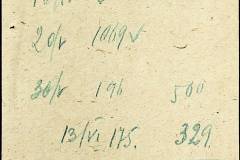 20/V 1049 V
30/V 196 500
13/VI 175. 329.